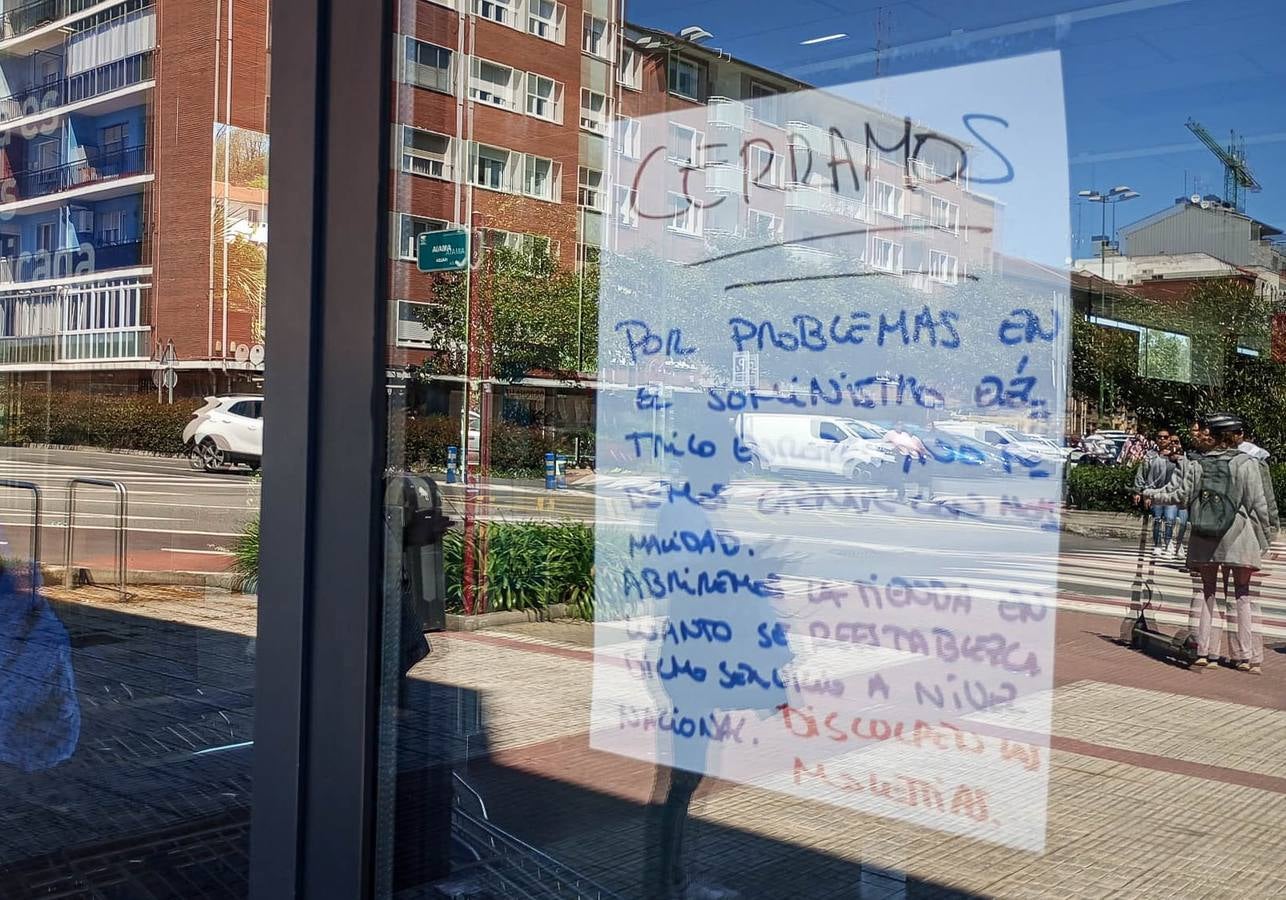 CERRAMOS
POR PROBLEMAS EN
EL SUMINISTRO ELÉC
TRICO EUROPEO, NO PO
DEMOS CERRAR CON NOR
MALIDAD.
ABRIREMOS LA TIENDA EN
CUANTO SE REESTABLEZCA
DICHO SERVICIO A NIVEL
NACIONAL. DISCULPEN LAS
MOLESTIAS.